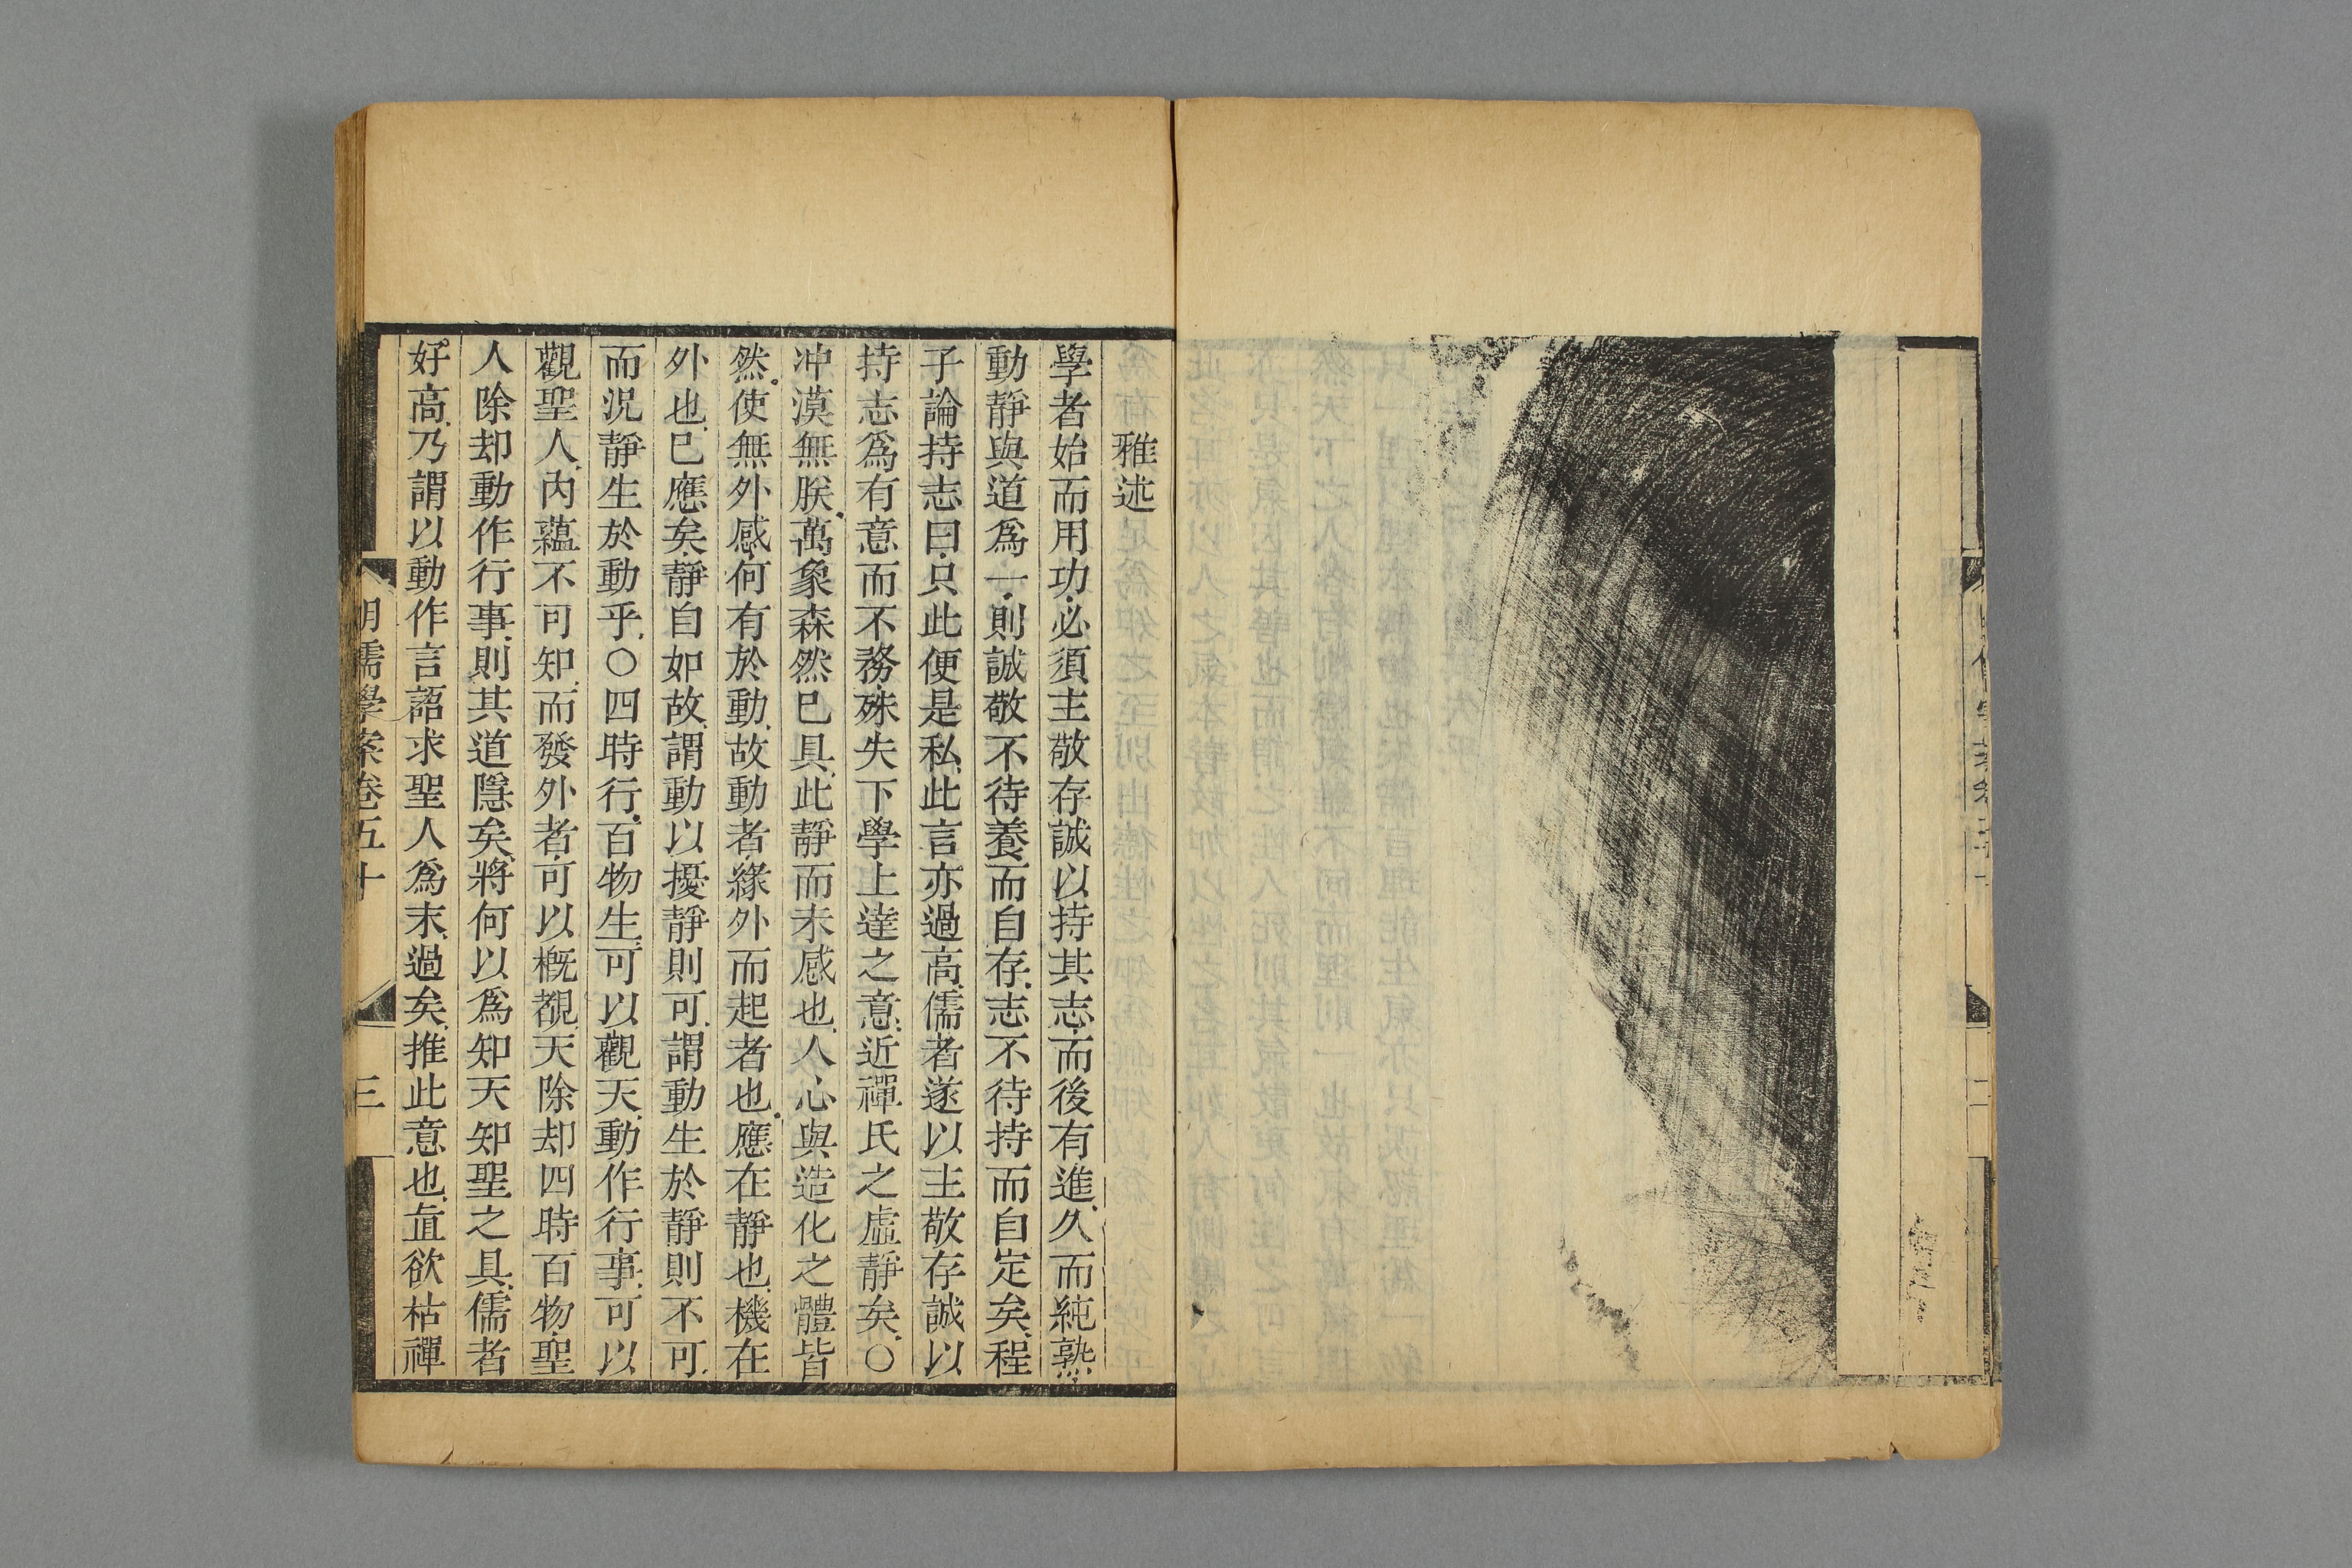 雅述
學者始而用功必須主敬存誠以持其志而後有進久而純熟
動靜與道爲一則誠敬不待養而自存志不待持而自定矣程
子論持志曰只此便是私此言亦過高儒者遂以主敬存誠以
持志爲有意而不務殊失下學上達之意近禪氏之虛靜矣〇
冲漠無朕萬象森然已具此靜而未感也人心與造化之體皆
然使無外感何有於動故動者緣外而起者也應在靜也機在
外也已應矣靜自如故謂動以擾靜則可謂動生於靜則不可
而況靜生於動乎〇四時行百物生可以觀天動作行事可以
觀聖人內蘊不可知而發外者可以概覩天除却四時百物聖
人除却動作行事則其道隱矣將何以爲知天知聖之具儒者
好高乃謂以動作言語求聖人爲末過矣推此意也直欲枯禪
明儒學案卷五十
三